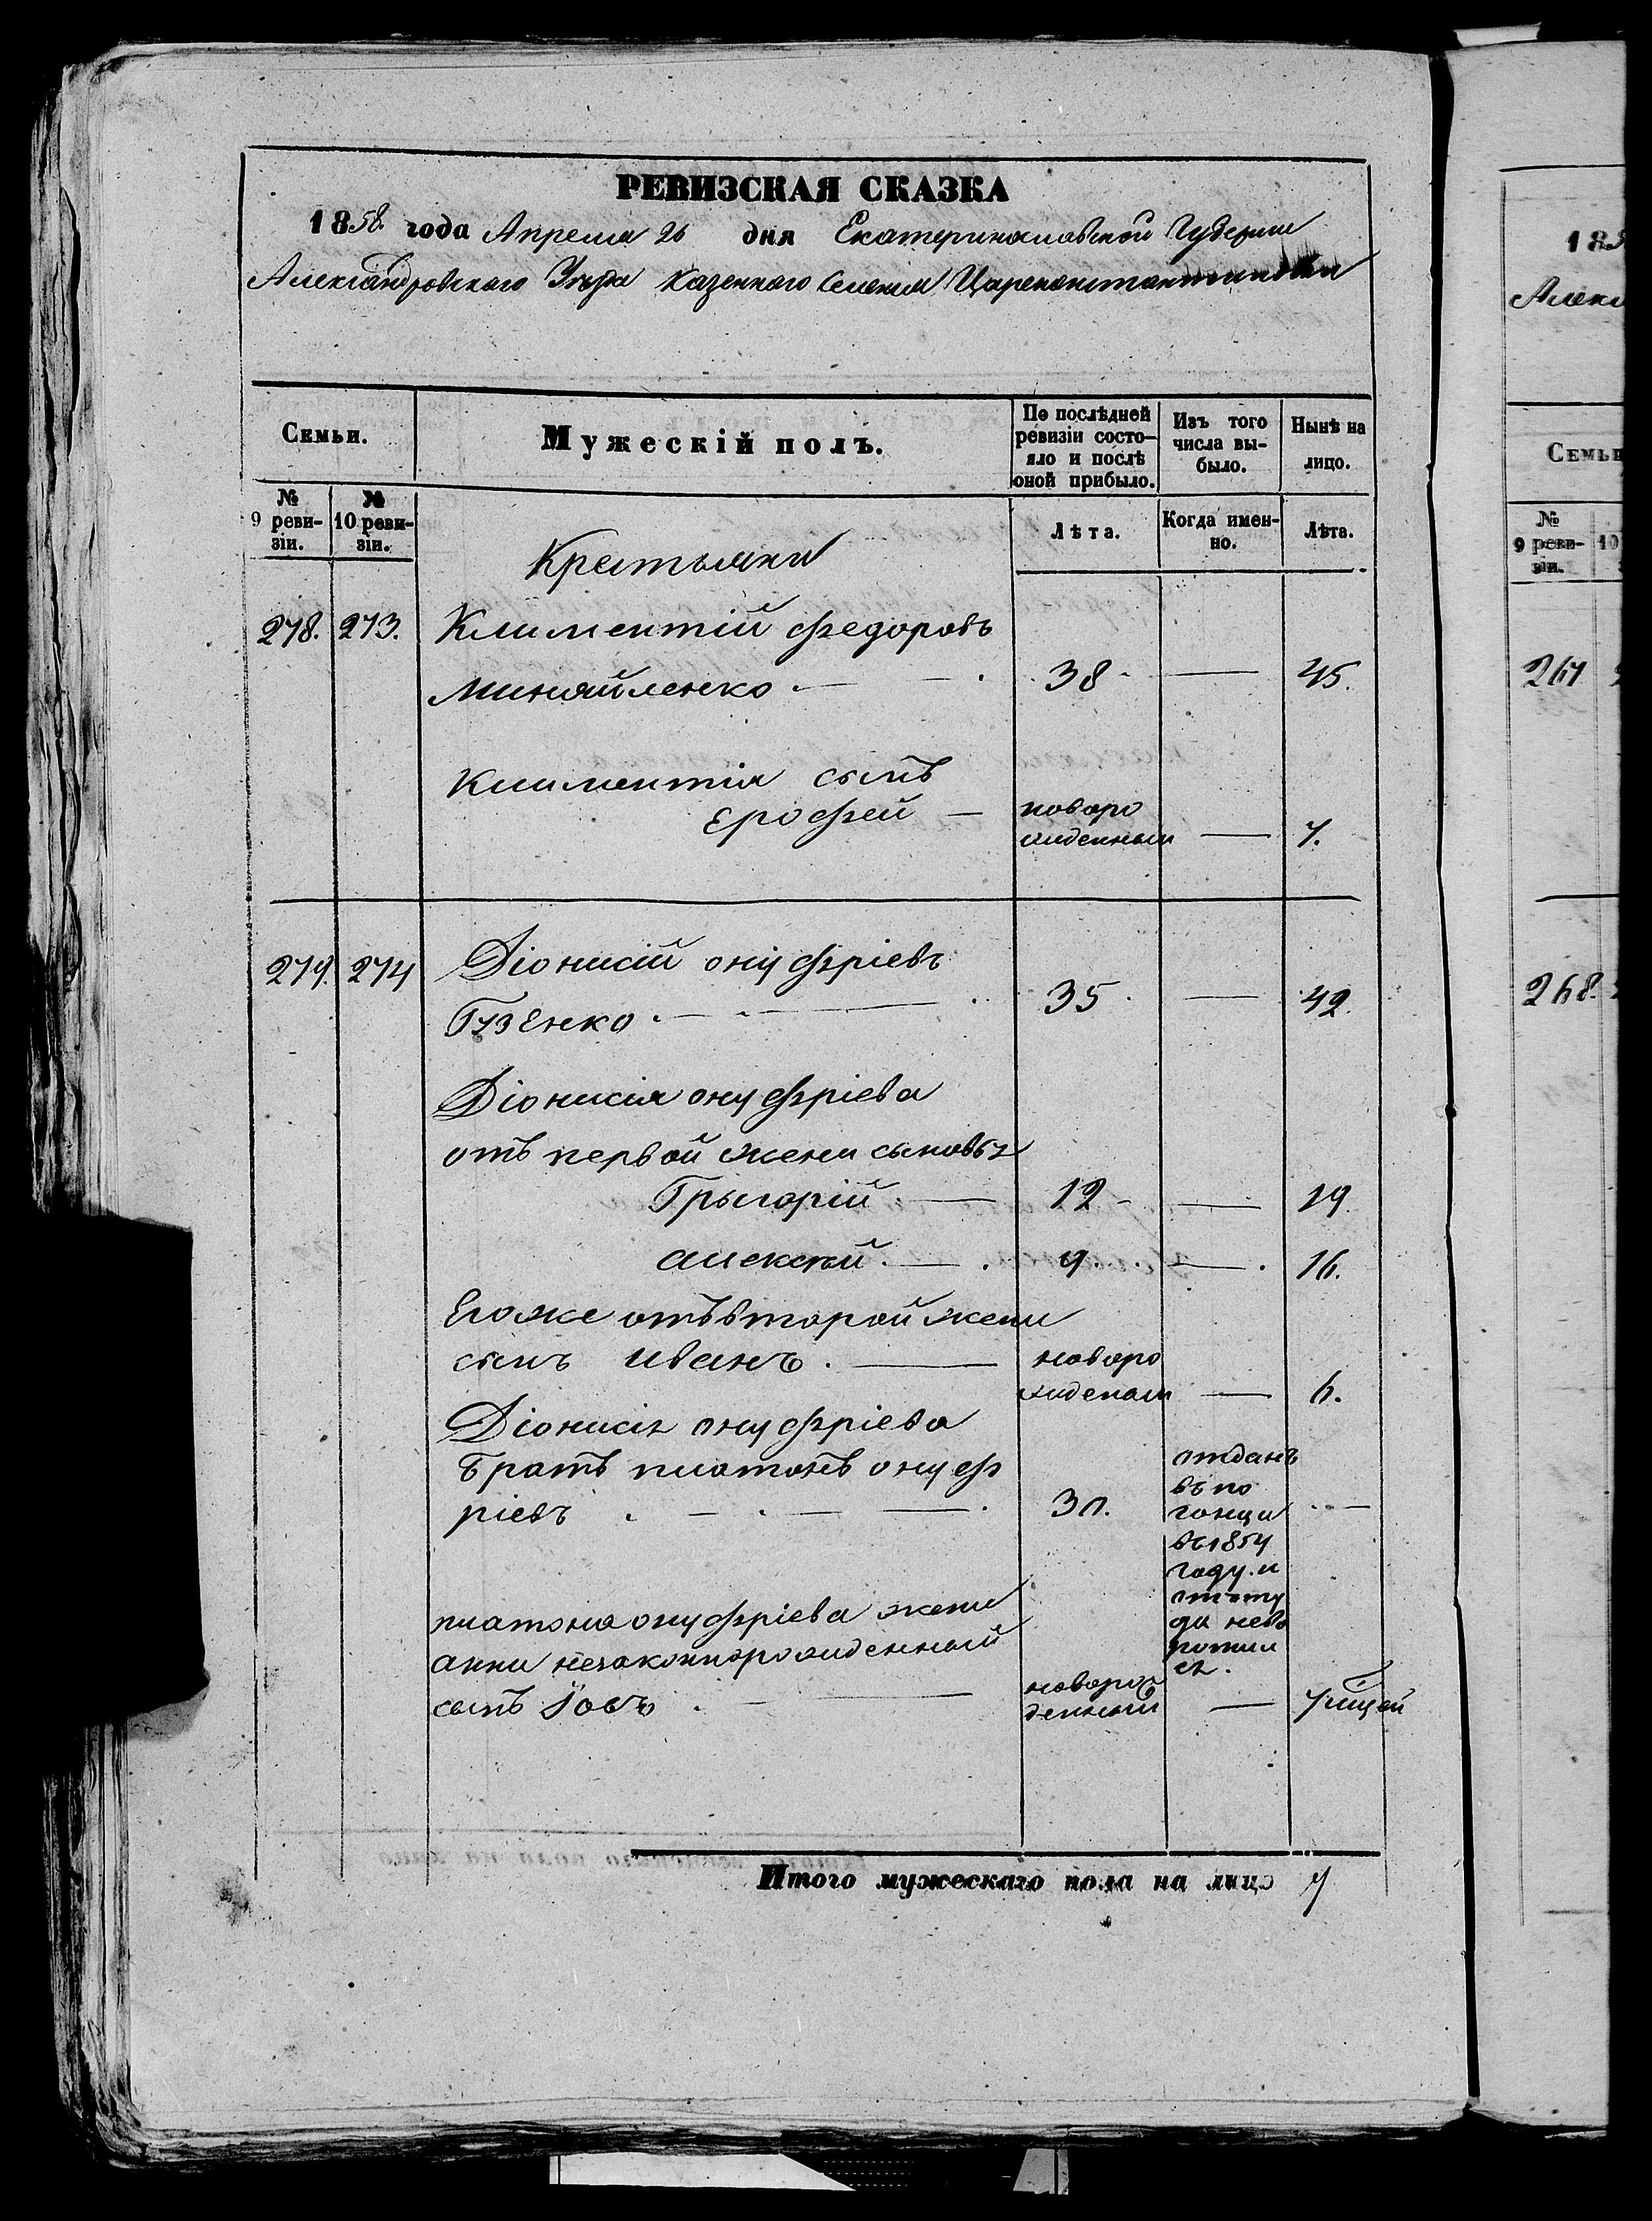 РЕВИЗСКАЯ СКАЗКА
1858. года Апреля 26 дня Екатеринославской Губернии
Александровского Уезда казенного селения Цареконстантиновки
Семьи.
Мужескій полъ.
По послѣдней ревизіи состояло и послѣ оной прибыло.
Изъ того числа выбыло.
Нынѣ на лицо.
№ 9 ревизіи.
№ 10 ревизіи.
Лѣта.
Когда именно.
Лѣта.
Крестьяни
278. 273. Климентій Федоровъ
Миняйленко 38 — 45.
Климентія сынъ
Ерофей — новоро
жденный — 7.
279. 274 Діонисій онуфріевъ
Гузенко 35 — 42.
Діонисія онуфріева
отъ первой жени сыновья
Грыгорій — 12 — 19.
алексѣй — 9. — 16.
Егоже отъ второй жени
сынъ иванъ. — новоро
жденой — 6.
Діонисія онуфріева
братъ платонъ онуф
ріевъ 30. —
отданъ
въ по
гонци
въ 1854
году. и
оттту
да нево
ротил
ся.
платона онуфріева жени
анни незаконнорожденный
сынъ Іовъ новоро
денный — 7 мцей
Итого мужескаго пола на лицо 7
185
Алекс
Семьи
№ 9 ревизіи.
10
267
268.